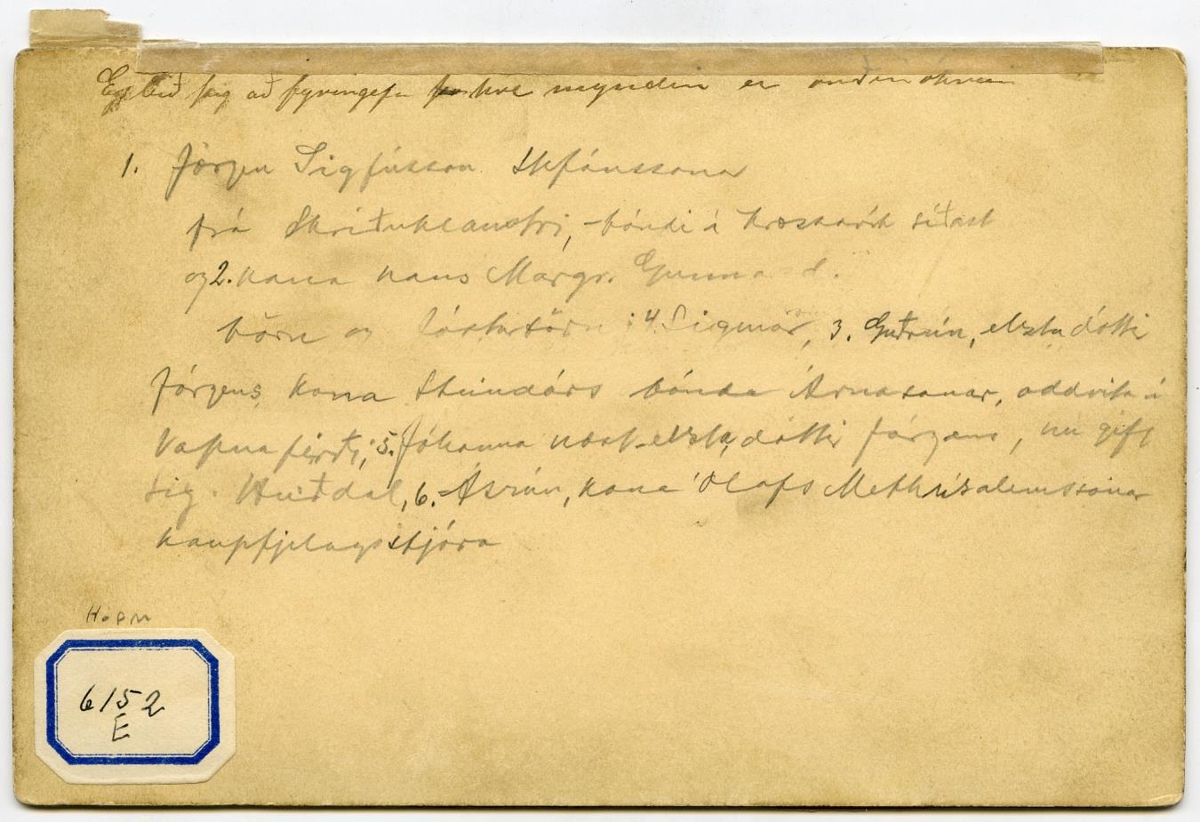 Eg bið þig að fyrirgefa hve myndin er orðin óhrein
1. Jörgen Sigfússon Stefánssonar
frá Skriðuklaustri, bóndi á Krossavík síðast
og 2. kona hans Margr. Gunna d.
börn og fósturbörn: 4. Sigmar, 3. Guðrún, elzta dóttir
Jörgens, kona Steindórs bónda Árnasonar, oddvita á
Vapnafirði, 5. Jóhanna næst-elzta dóttir Jörgens, nú gift
Sig. Heiðdal, 6. Ásrún, kona Ólafs Methúsalemssonar
kaupfjelagsstjóra
6152
E